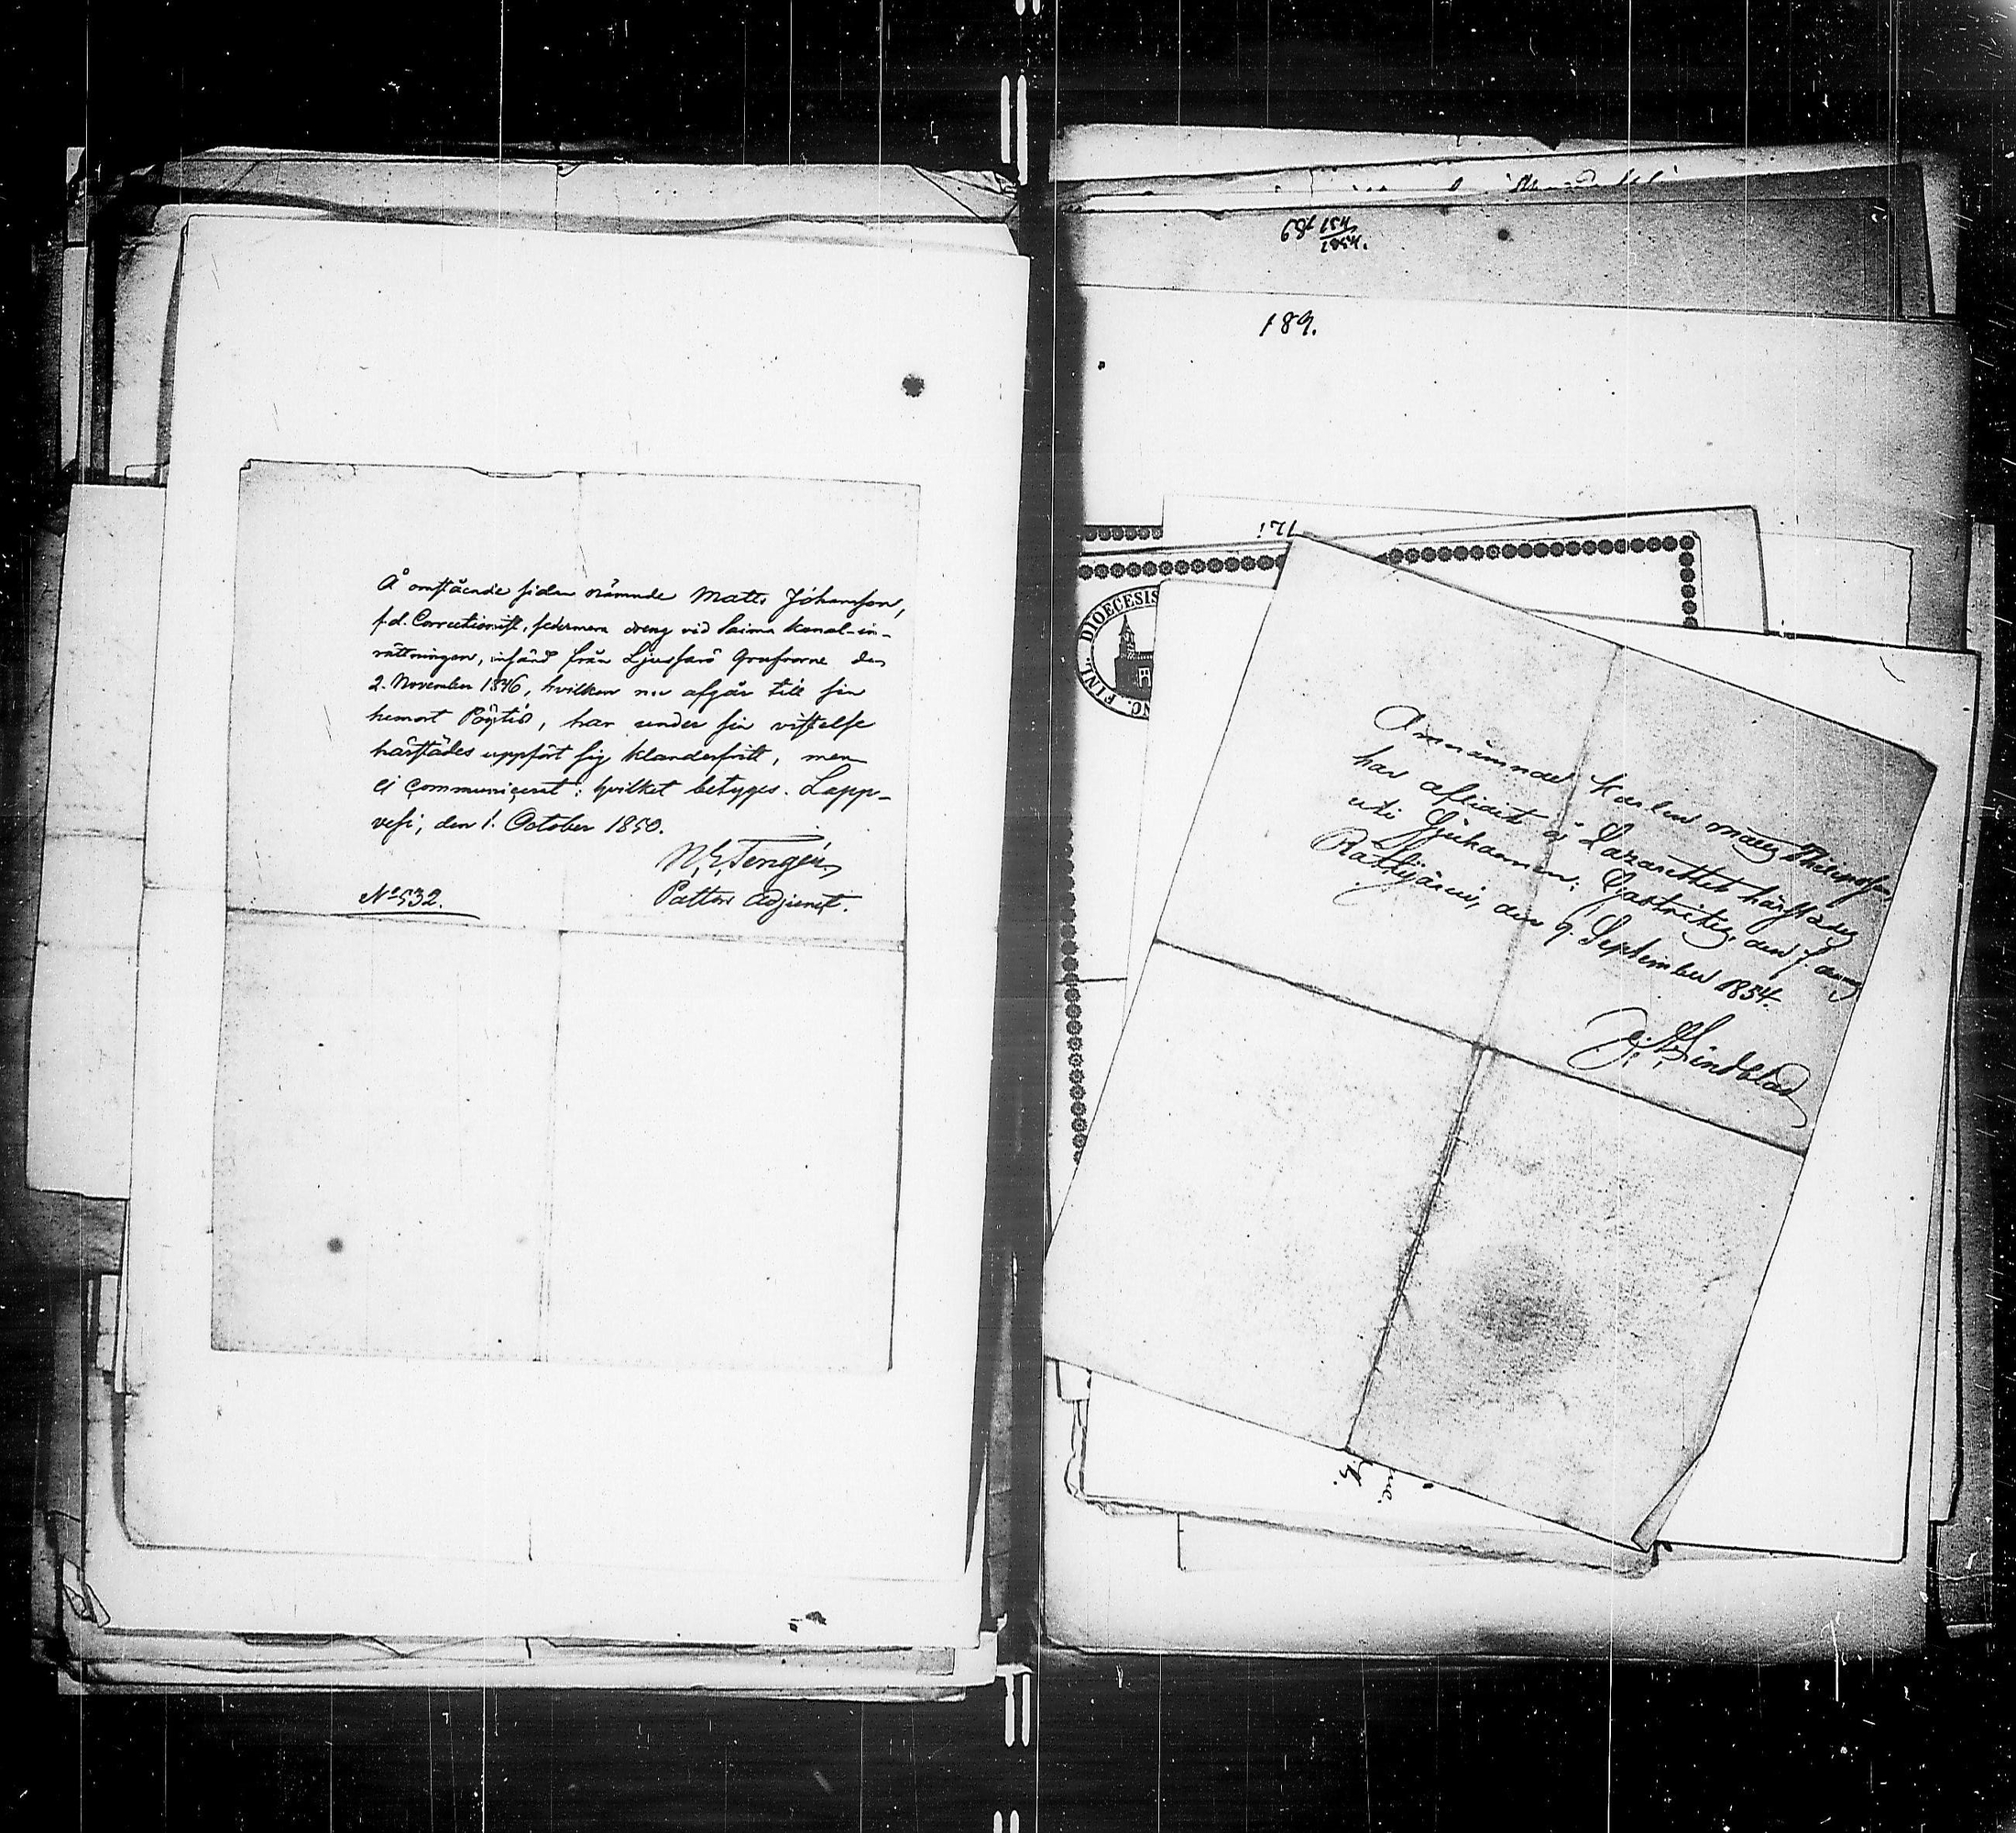 Å omstående sidan nämnde Matts Johansson,
f.d. Correctionist, sedermera dreng vid Saima Kanal-in-
rättningen, insänd från Ljussarö Grufvorne den
2. November 1846, hvilken nu afgår till sin
hemort Pöytis, har under sin vistelse
härstädes uppfört sig klanderfritt, men
ej communicerat: hvilket betygas. Lapp-
vesi, den 1. October 1850.
Tengén
Pastors Adjunct.
No 532.
4587
1854.
457 189
189.
121
FINL. DIOECESIS
NC.
Omnämnde Karlen
har aflidit å Lazarettet härstädes
uti Sjukdomen: Gastritis, den 7. dennes
Rättijärvi, den 9. September 1854.
Lindblad